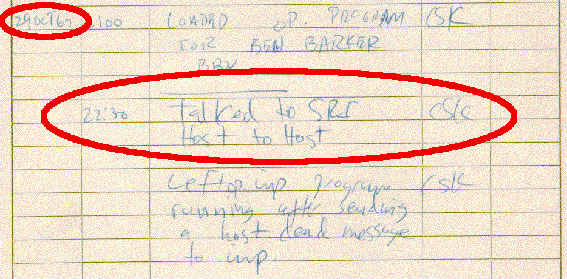 29OCT69 2100 LOADED OP. PROGRAM CSK
FOR BEN BARKER
BBN
22:30 Talked to SRI CSK
Host to Host
Left op imp program CSK
running after sending
a host dead message
to imp.